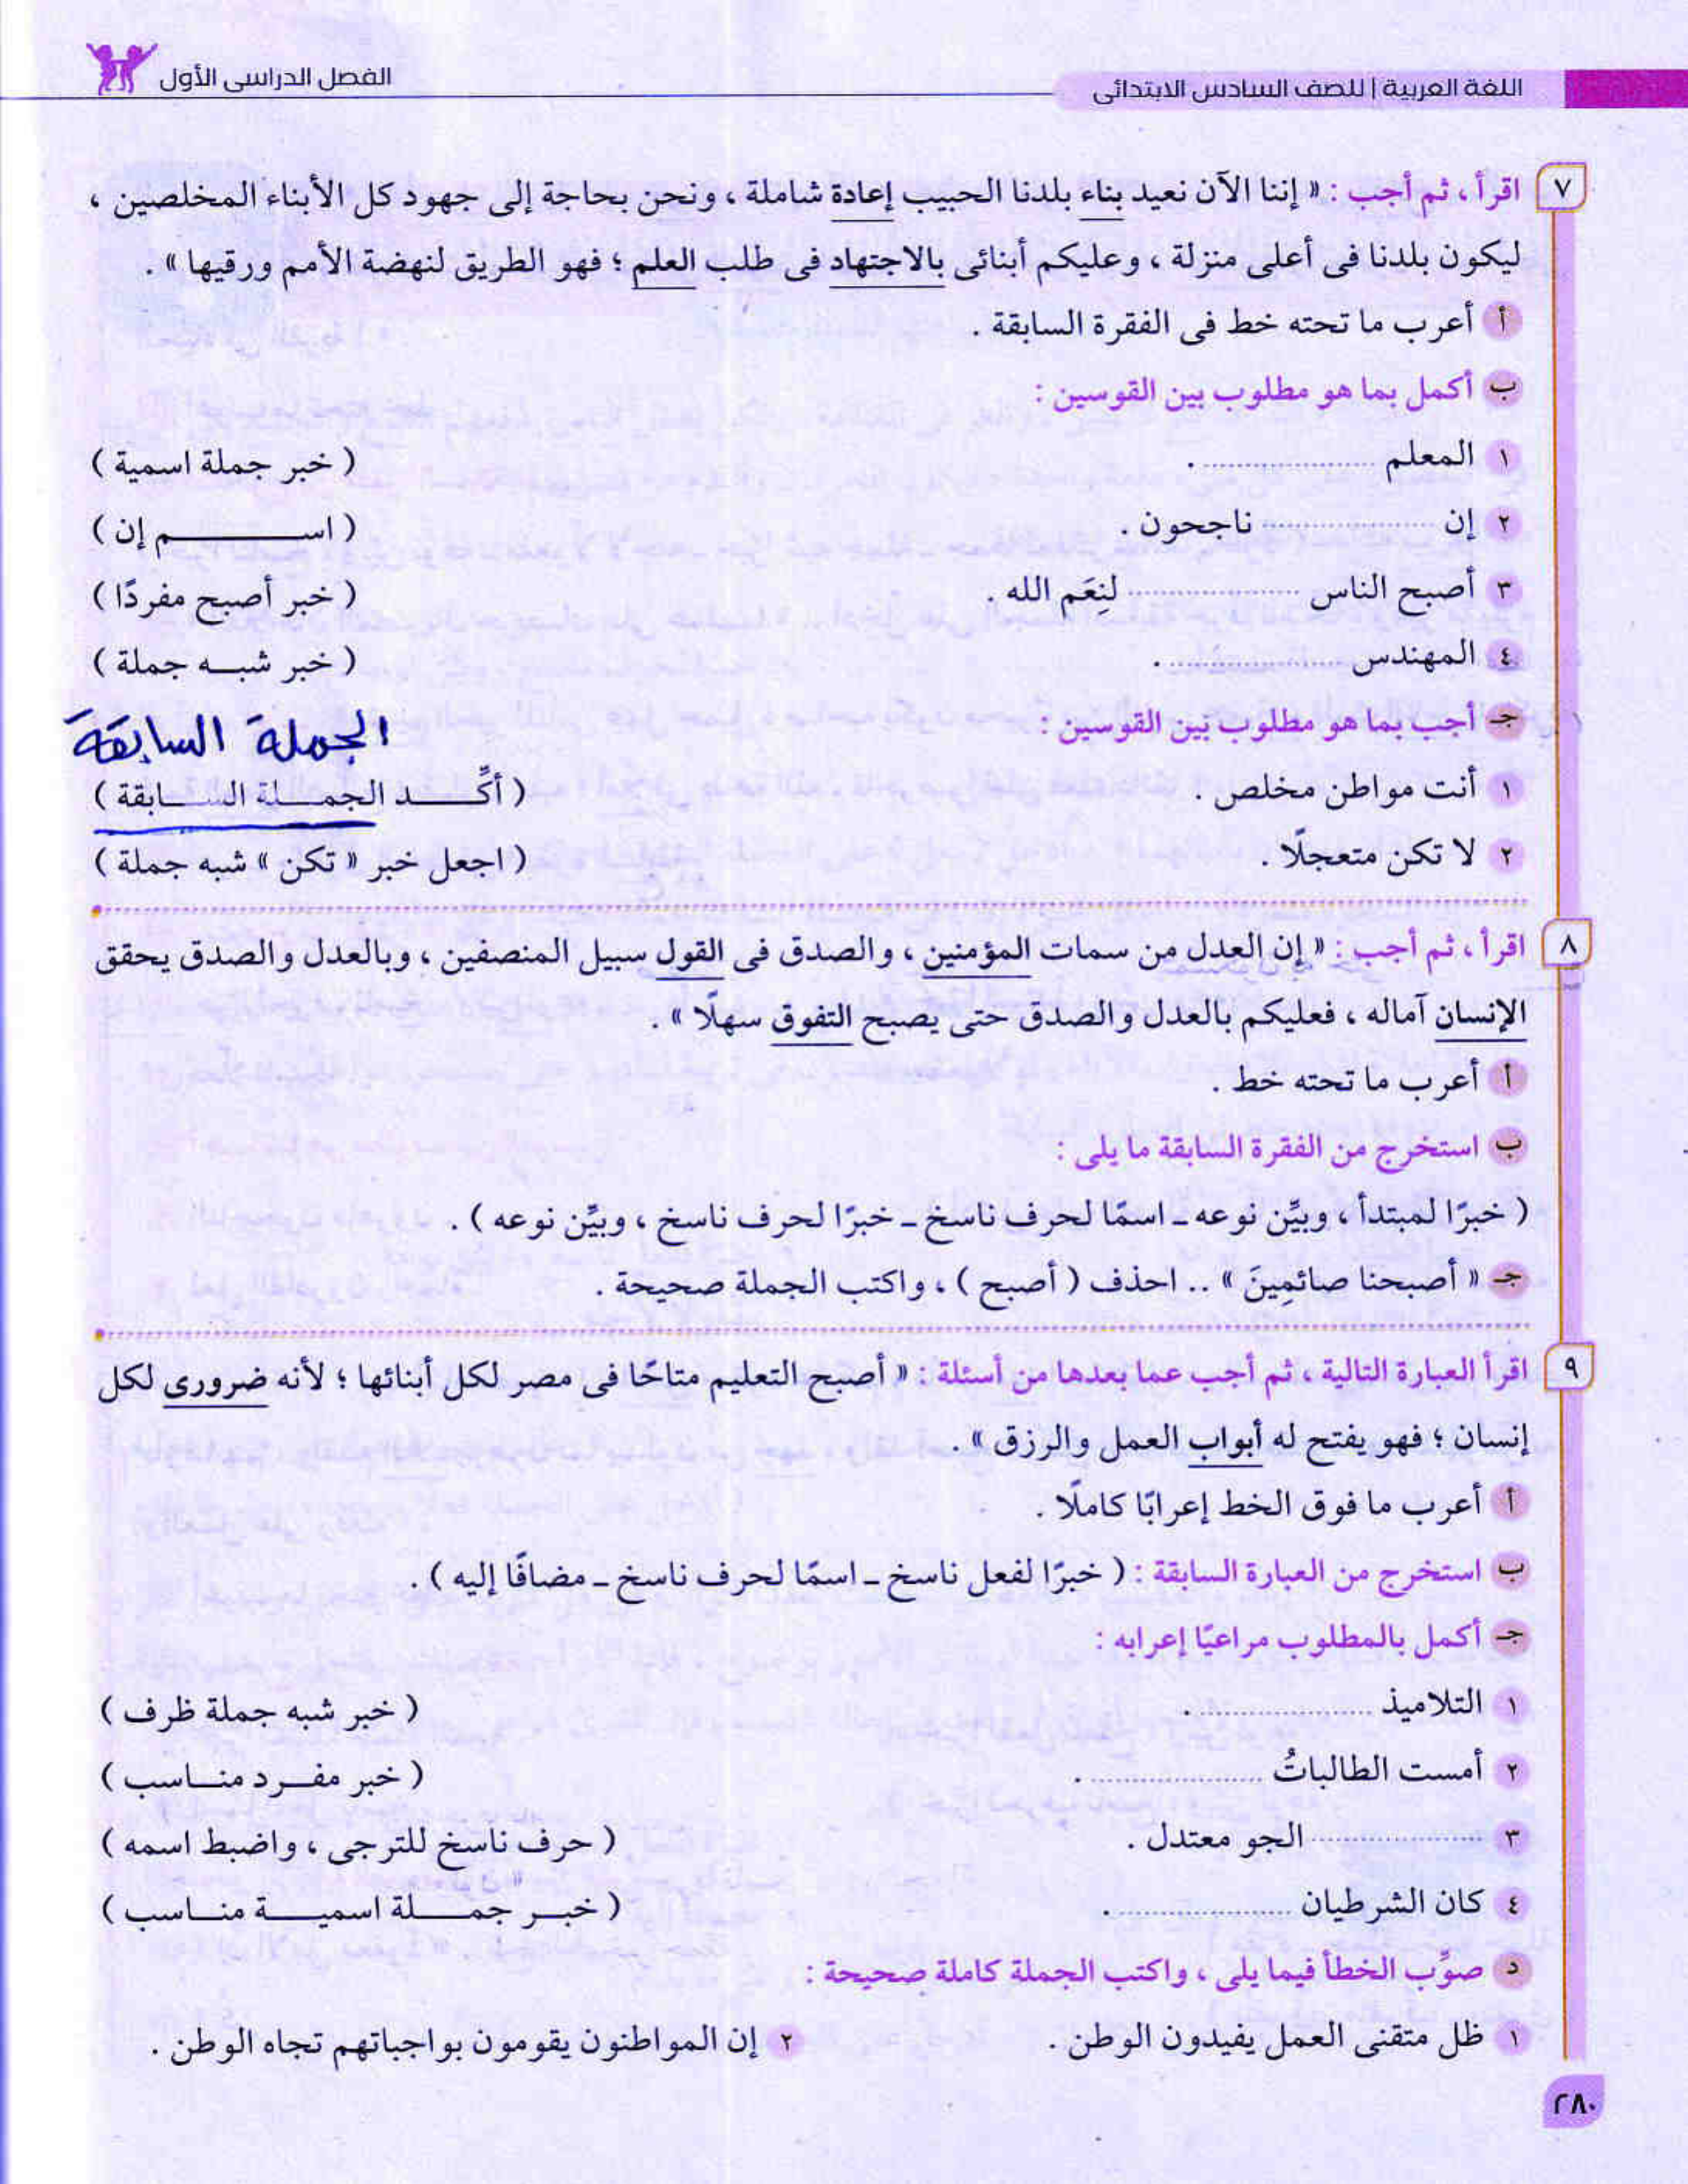 اللغة العربية | للصف السادس الابتدائى
الفصل الدراسى الأول
٧ اقرأ ، ثم أجب : « إننا الآن نعيد بناء بلدنا الحبيب إعادة شاملة ، ونحن بحاجة إلى جهود كل الأبناء المخلصين ،
ليكون بلدنا فى أعلى منزلة ، وعليكم أبنائى بالاجتهاد فى طلب العلم ؛ فهو الطريق لنهضة الأمم ورقيها » .
أ أعرب ما تحته خط فى الفقرة السابقة .
ب أكمل بما هو مطلوب بين القوسين :
١ المعلم .................... . ( خبر جملة اسمية )
٢ إن .................... ناجحون . ( اسم إن )
٣ أصبح الناس .................... لنِعَم الله . ( خبر أصبح مفردًا )
٤ المهندس .................... . ( خبر شبه جملة )
جـ أجب بما هو مطلوب بين القوسين :
الجملة السابقة
١ أنت مواطن مخلص . ( أكِّد الجملة السابقة )
٢ لا تكن متعجلًا . ( اجعل خبر « تكن » شبه جملة )
٨ اقرأ ، ثم أجب : « إن العدل من سمات المؤمنين ، والصدق فى القول سبيل المنصفين ، وبالعدل والصدق يحقق
الإنسان آماله ، فعليكم بالعدل والصدق حتى يصبح التفوق سهلًا » .
أ أعرب ما تحته خط .
ب استخرج من الفقرة السابقة ما يلى :
( خبرًا لمبتدأ ، وبيِّن نوعه ـ اسمًا لحرف ناسخ ـ خبرًا لحرف ناسخ ، وبيِّن نوعه ) .
جـ « أصبحنا صائمِينَ » .. احذف ( أصبح ) ، واكتب الجملة صحيحة .
٩ اقرأ العبارة التالية ، ثم أجب عما بعدها من أسئلة : « أصبح التعليم متاحًا فى مصر لكل أبنائها ؛ لأنه ضرورى لكل
إنسان ؛ فهو يفتح له أبواب العمل والرزق » .
أ أعرب ما فوق الخط إعرابًا كاملًا .
ب استخرج من العبارة السابقة : ( خبرًا لفعل ناسخ ـ اسمًا لحرف ناسخ ـ مضافًا إليه ) .
جـ أكمل بالمطلوب مراعيًا إعرابه :
١ التلاميذ .................... . ( خبر شبه جملة ظرف )
٢ أمست الطالباتُ .................... . ( خبر مفرد مناسب )
٣ .................... الجو معتدل . ( حرف ناسخ للترجى ، واضبط اسمه )
٤ كان الشرطيان .................... . ( خبر جملة اسمية مناسب )
د صوِّب الخطأ فيما يلى ، واكتب الجملة كاملة صحيحة :
١ ظل متقنى العمل يفيدون الوطن . ٢ إن المواطنون يقومون بواجباتهم تجاه الوطن .
٢٨٠